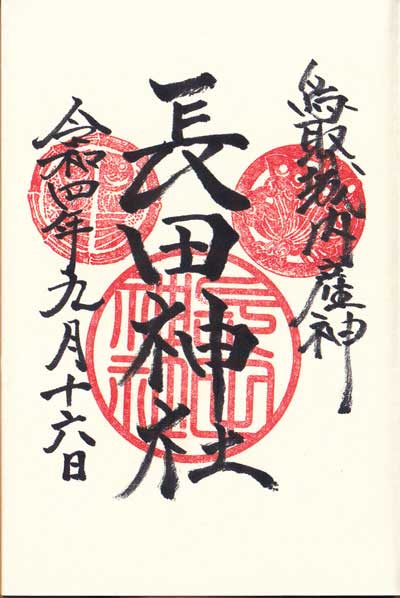 鳥取城内産神
長田神社
令和四年九月十六日